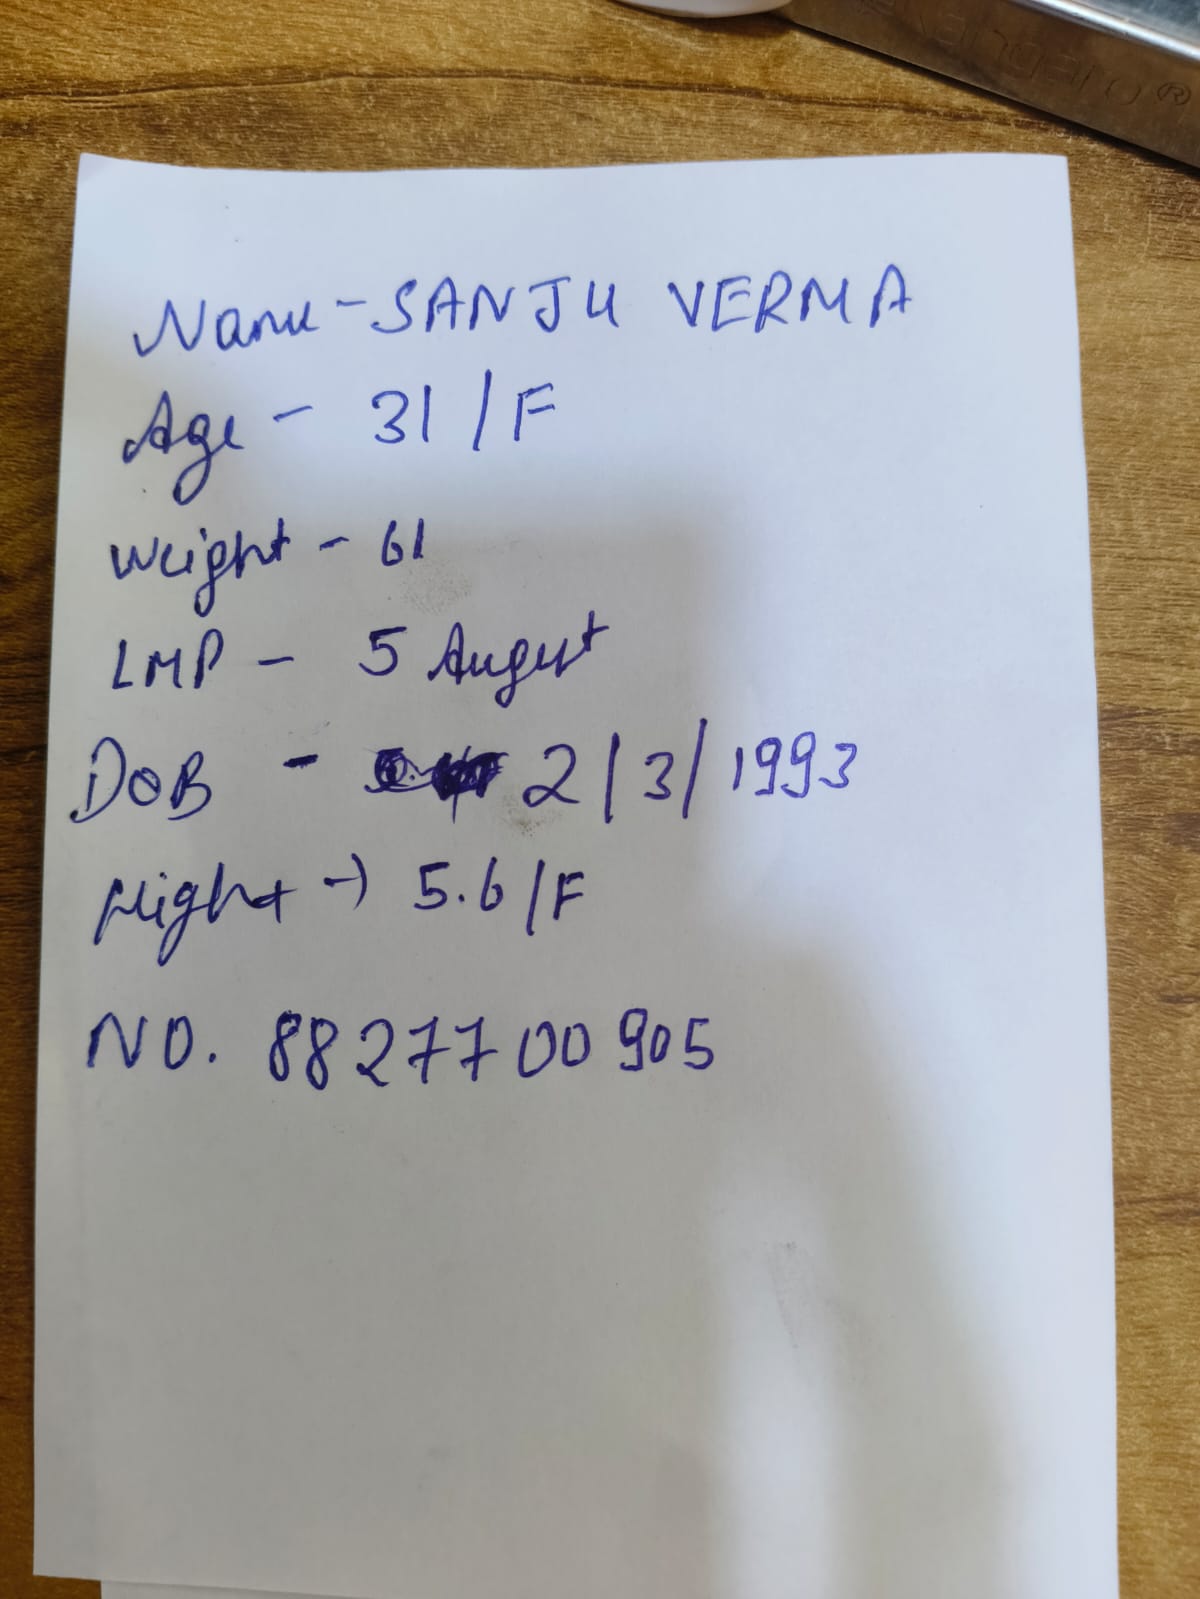 kangaro®
Name - SANJU VERMA
Age - 31 / F
Weight - 61
LMP - 5 August
DOB - 2/3/1993
Hight -) 5.6/F
NO. 8827700905